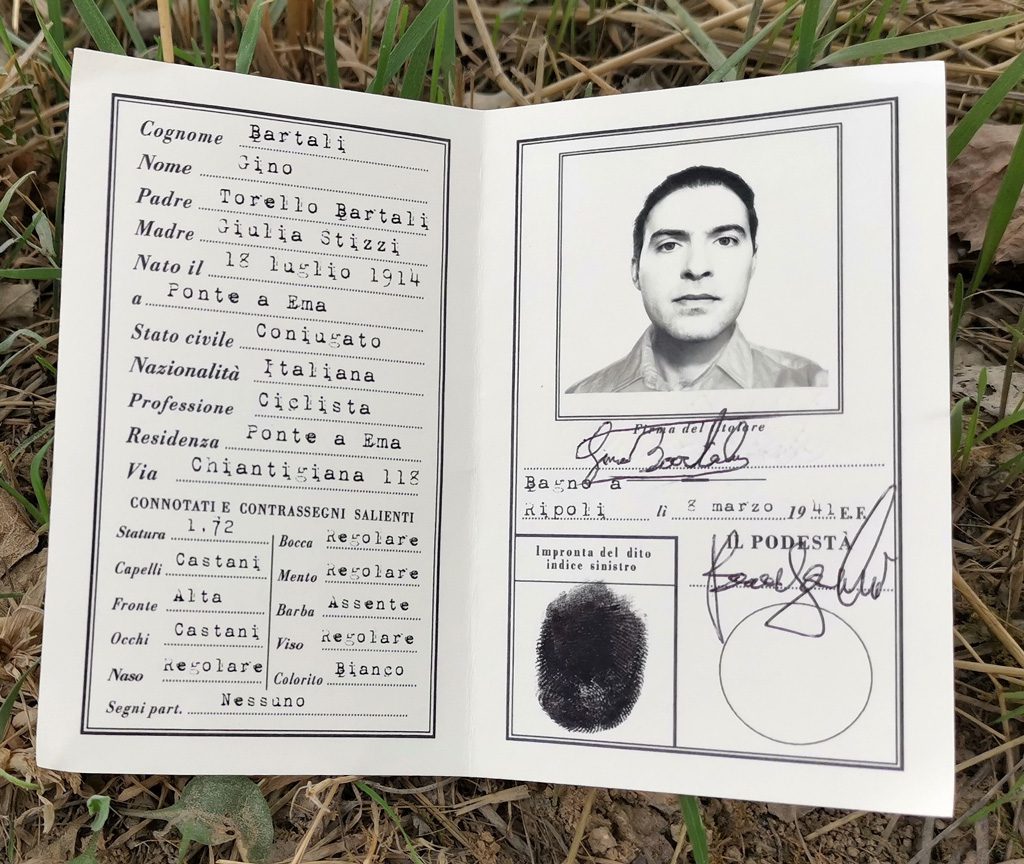 Cognome Bartali
Nome Gino
Padre Torello Bartali
Madre Giulia Stizzi
Nato il 18 luglio 1914
a Ponte a Ema
Stato civile Coniugato
Nazionalità Italiana
Professione Ciclista
Residenza Ponte a Ema
Via Chiantigiana 118
CONNOTATI E CONTRASSEGNI SALIENTI
Statura 1.72
Capelli Castani
Fronte Alta
Occhi Castani
Naso Regolare
Bocca Regolare
Mento Regolare
Barba Assente
Viso Regolare
Colorito Bianco
Segni part. Nessuno
Firma del titolare
Gino Bartali
Bagno a
Ripoli li 8 marzo 1941 E.F.
IL PODESTÀ
Impronta del dito
indice sinistro